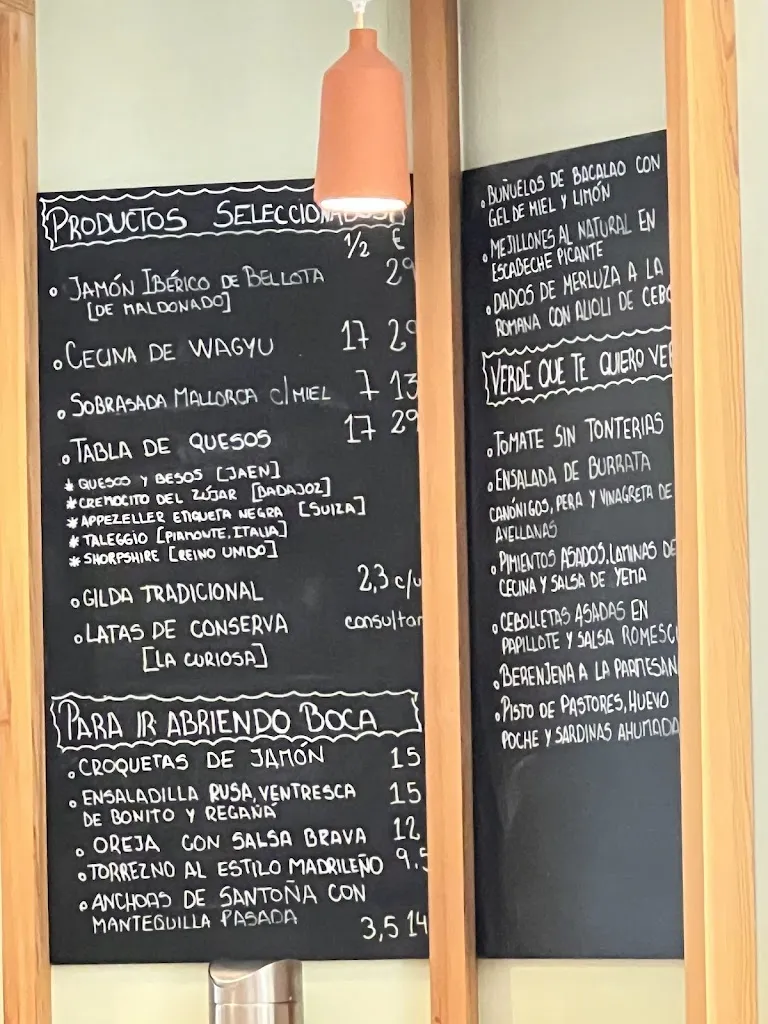 PRODUCTOS SELECCIONADOS
1/2 €
JAMÓN IBÉRICO DE BELLOTA 29
[DE MALDONADO]
CECINA DE WAGYU 17 29
SOBRASADA MALLORCA C/MIEL 7 13
TABLA DE QUESOS 17 29
* QUESOS Y BESOS [JAEN]
* CREMOCITO DEL ZÚJAR [BADAJOZ]
* APPEZELLER ETIQUETA NEGRA [SUIZA]
* TALEGGIO [PIAMONTE, ITALIA]
* SHORPSHIRE [REINO UNIDO]
GILDA TRADICIONAL 2,3 c/u
LATAS DE CONSERVA consultar
[LA CURIOSA]
PARA IR ABRIENDO BOCA
CROQUETAS DE JAMÓN 15
ENSALADILLA RUSA, VENTRESCA 15
DE BONITO Y REGAÑÁ
OREJA CON SALSA BRAVA 12
TORREZNO AL ESTILO MADRILEÑO 9.5
ANCHOAS DE SANTOÑA CON
MANTEQUILLA PASADA 3,5 14
BUÑUELOS DE BACALAO CON
GEL DE MIEL Y LIMÓN
MEJILLONES AL NATURAL EN
ESCABECHE PICANTE
DADOS DE MERLUZA A LA
ROMANA CON ALIOLI DE CEBO
VERDE QUE TE QUIERO VER
TOMATE SIN TONTERIAS
ENSALADA DE BURRATA
CANÓNIGOS, PERA Y VINAGRETA DE
AVELLANAS
PIMIENTOS ASADOS, LAMINAS DE
CECINA Y SALSA DE YEMA
CEBOLLETAS ASADAS EN
PAPILLOTE Y SALSA ROMESC
BERENJENA A LA PARMESAN
PISTO DE PASTORES, HUEVO
POCHE Y SARDINAS AHUMADA